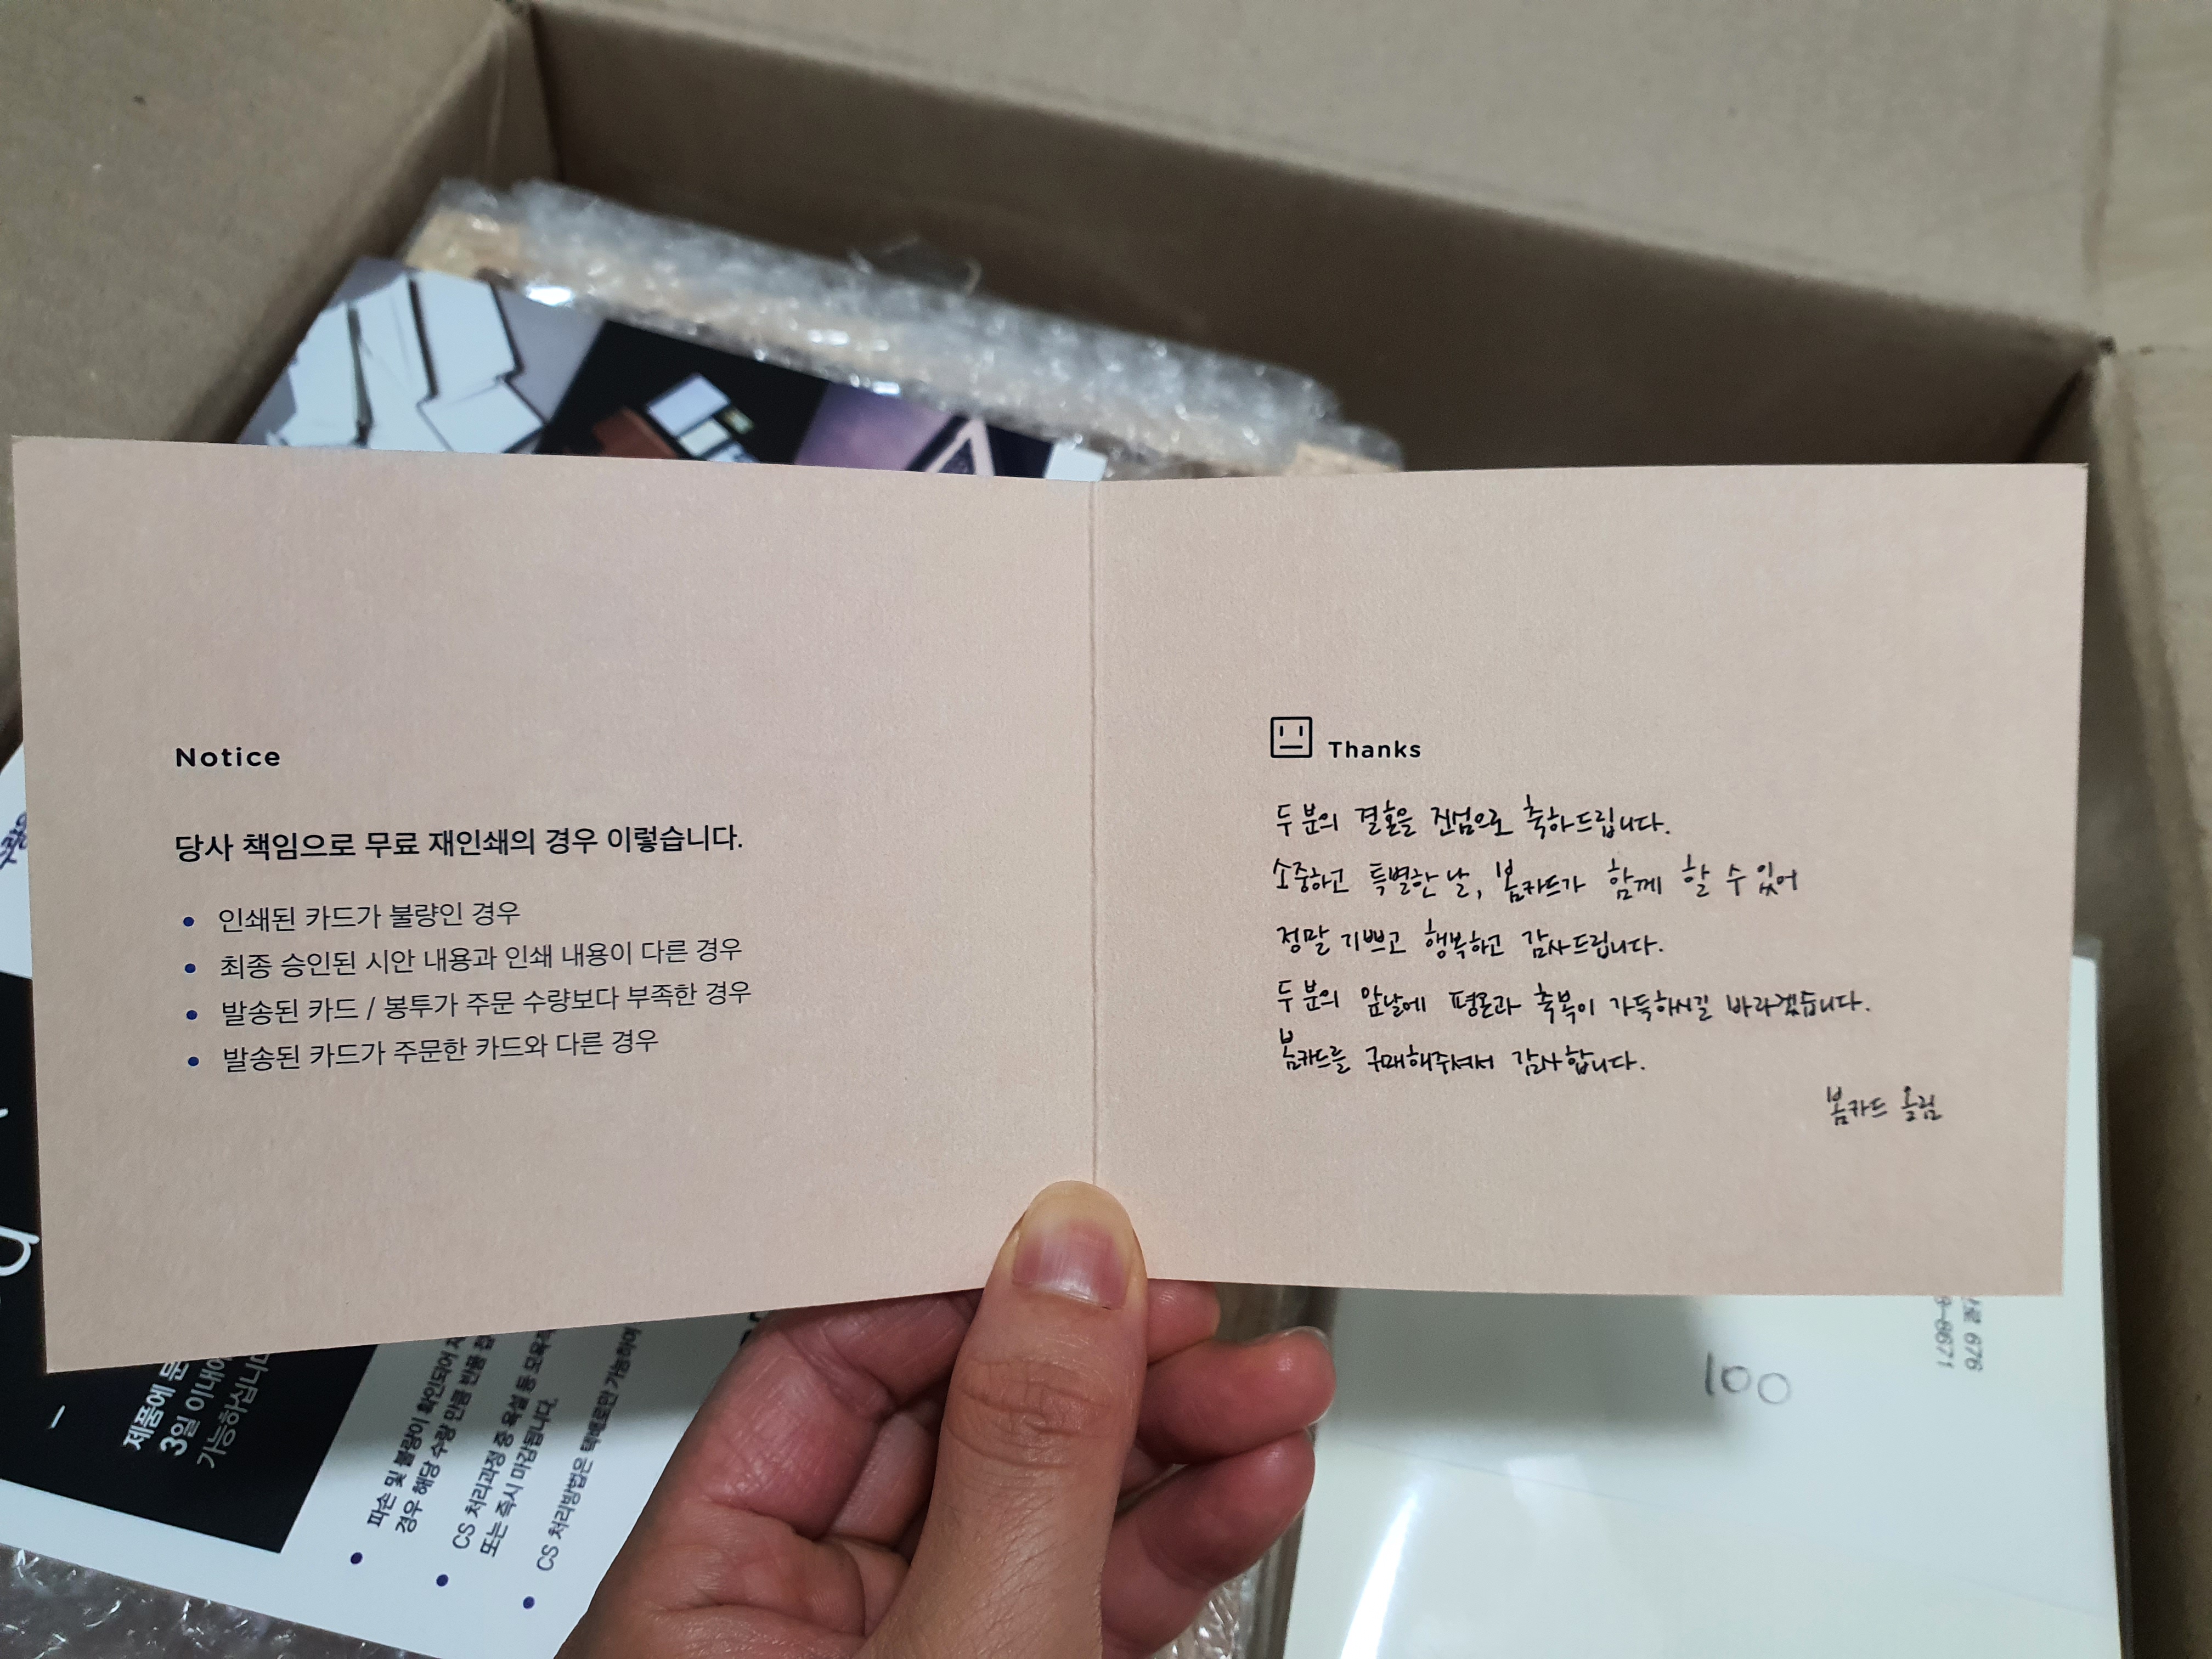 Notice
당사 책임으로 무료 재인쇄의 경우 이렇습니다.
• 인쇄된 카드가 불량인 경우
• 최종 승인된 시안 내용과 인쇄 내용이 다른 경우
• 발송된 카드 / 봉투가 주문 수량보다 부족한 경우
• 발송된 카드가 주문한 카드와 다른 경우
Thanks
두 분의 결혼을 진심으로 축하드립니다.
소중하고 특별한 날, 봄카드가 함께 할 수 있어
정말 기쁘고 행복하고 감사드립니다.
두 분의 앞날에 평온과 축복이 가득하시길 바라겠습니다.
봄카드를 구매해주셔서 감사합니다.
봄카드 올림
제품에
3일 이내에
가능하십니다
• 파손 및 불량이 확인되어
경우 해당 수량 만큼 반품
• CS 처리과정 중 욕설 등 모욕적
또는 즉시 마감됩니다.
• CS 처리방법은 택배로만 가능하며
100
676
-8671